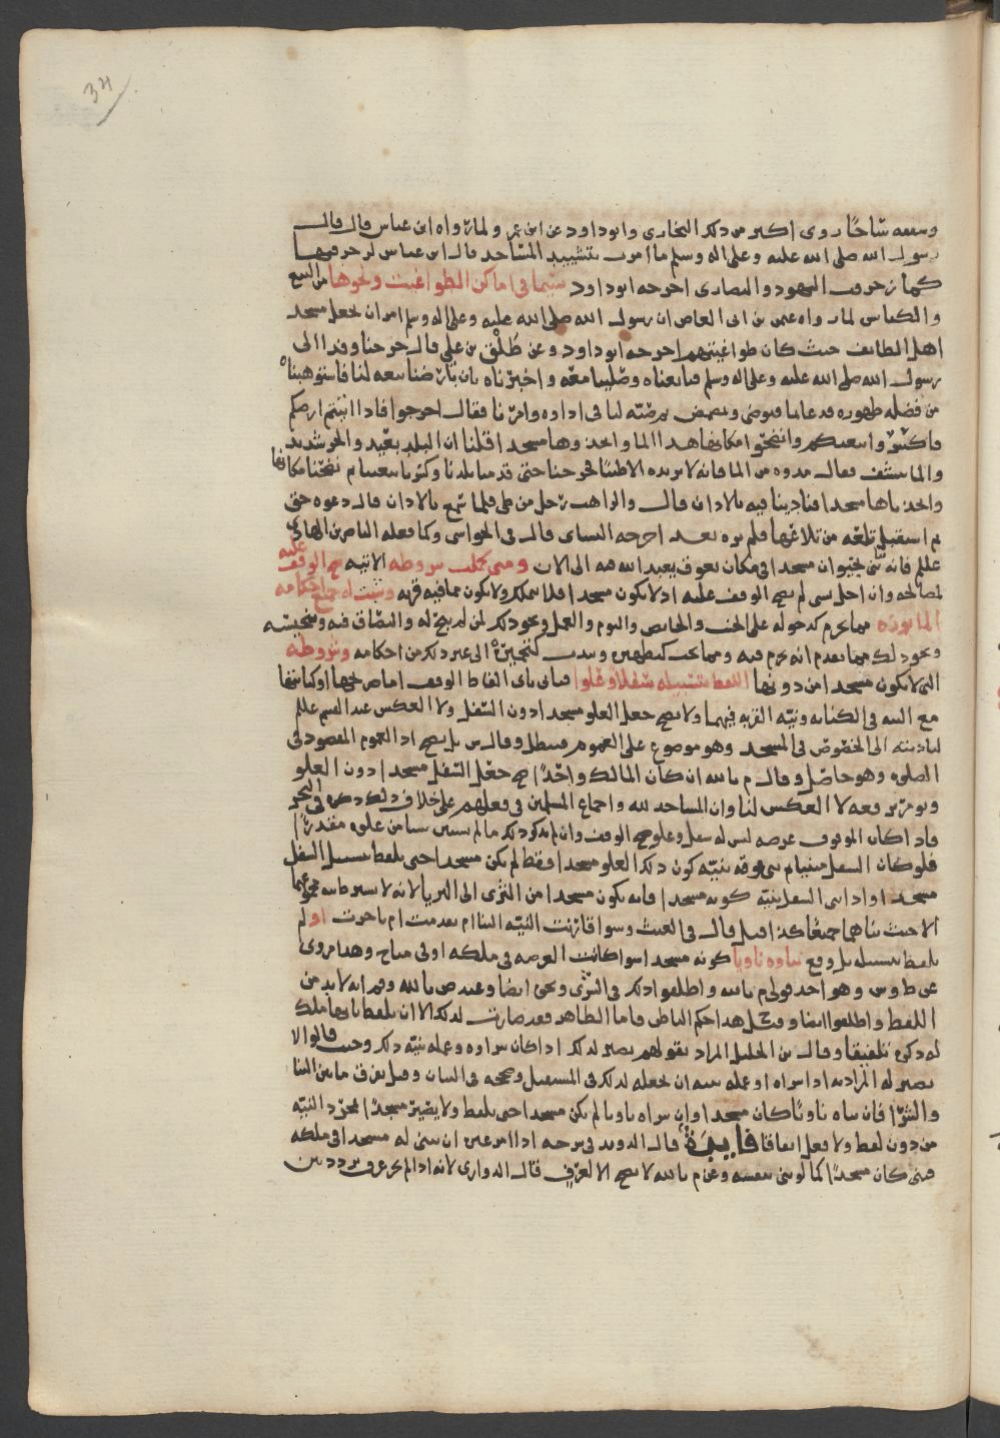 34
وسقفه ساجًا روى اكبر من ذلك البخاري وابو داود عن ابن عمر ولما رواه ابن عباس قال قال
رسول الله صلى الله عليه وعلى اله وسلم ما امرت بتشييد المساجد قال ابن عباس لتزخرفنها
كما زخرفت اليهود والنصارى اخرجه ابو داود سيما في اماكن الطواغيت ونحوها من البيع
والكنايس لما رواه عثمن بن ابي العاص ان رسول الله صلى الله عليه وعلى اله وسلم امر ان يجعل مسجد
اهل الطايف حيث كان طواغيتهم اخرجه ابو داود وعن طلق بن علي قال خرجنا وفدا الى
رسول الله صلى الله عليه وعلى اله وسلم فبايعناه وصلينا معه واخبرناه بان بارضنا بيعه لنا فاستوهبناه
من فضله طهوره فدعا بما فتوضى وتمضمض ثم صبه لنا في اداوه وامرنا فقال اخرجوا فاذا اتيتم ارضكم
فاكسروا بيعتكم وانضحوا مكانها هذا الما واتخذوها مسجدا قلنا ان البلد بعيد والحر شديد
والما ينشف فقال مدوه من الما فانه لا يزيده الا طيبا فخرجنا حتى قدمنا بلدنا وكسرنا بيعتنا ثم نضحنا مكانها
واتخذناها مسجدا فنادينا فيه بالاذان قال والراهب رجل من طي فلما سمع بالاذان قال دعوه حق
ثم استقبل تلعه من تلاعنا فلم نره بعد اخرجه النساى قال في الحواشي وكما فعله الناصر بن الهادي
عللم فانه بنى مسجدا في مكان يعرف الى الان ومتى كملت شروطه الاتيه صح الوقف عليه
لمصالحه وان اختل شي لم يصح الوقف عليه اذ لا يكون مسجدا فلا يملك ولا يكون مما فيه قربه وتثبت له جميع احكامه
الماثوره مما يحرم كدخوله على الجنب والحايض والنوم والعمل ونحو ذلك لمن لم يبح له والبصاق فيه وتنجيسه
ونحو ذلك مما تقدم انه يحرم فيه ومما يجب كتطهيره ويندب الى غير ذلك من احكامه وشروطه
التي لا يكون مسجدا من دونها اللفظ بتسبيله سفلا وعلوا فياتي باي الفاظ الوقف اما صريحها او كنايتها
مع النيه في الكنايه ونيه القربه فيهما ولا يصح جعل العلو مسجدا دون السفل ولا العكس عند القسم عللم
لتاديته الى الخصوص في المسجد وهو موضوع على العموم فيبطل وقال س بل يصح اذ العموم المقصود في
الصلوه وهو حاصل وقال م بالله ان كان المالك واحدًا صح جعل السفل مسجدا دون العلو
ويومر برفعه لا العكس لنا وان المساجد لله واجماع المسلمين في فعلهم على خلاف ذلك ذكره في البحر
فاذا كان الموقوف عرصه ليس له سفل وعلو صح الوقف وان لم يذكر ذلك ما لم يستثن شيا من علوه مقدرًا
فلو كان السفل مبنيا ثم بنى فوقه بنيه كون ذلك العلو مسجدا فقط لم يكن مسجدا حتى يلفظ بتسبيل السفل
مسجدا واذا بنى السفل بنيه كونه مسجدا فانه يكون مسجدا من الثرى الى الثريا لانه لا يشترط نيه
الا حيث بناهما جميعًا كذا قيل قال في الغيث وسوا قارنت النيه البنا ام تقدمت ام تاخرت او لم
يلفظ بتسبيله بل وقع بناوه ناويا كونه مسجدا سوا كانت العرصه في ملكه او في مباح وهذا مروي
عن ط وس وهو احد قولي م بالله واطلقوا ذلك في الشرى ونحوه ايضا وعند ص بالله انه لا بد من
اللفظ واطلقوا ايضا وقيل هذا حكم الباطن فاما الظاهر فقد صارت لذلك الا ان يلفظ بانها ملك
له ذكره تلفيقا وقال بن الخليل المراد بقولهم يصير لذلك اذا كان شراوه وعمله بنيه ذلك وحيث قالوا لا
يصير له المراد به اذا شراه او عمله بنيه ان يجعله لذلك في المستقبل وصححه في البيان وقيل يفرق ما بين البنا
والشرا فان بناه ناويًا كان مسجدا وان شراه ناويا لم يكن مسجدا حتى يلفظ ولا يصير مسجدًا بمجرد النيه
من دون لفظ ولا فعل اتفاقا فايدة قال الدويد في شرحه اذا امر غيره ان يبني له مسجدا في ملكه
فبنى كان مسجدًا كما لو بنى بنفسه وعن م بالله لا يصح الا لعرف قال الدواري لانه اذا لم يجر عرف تردد بين